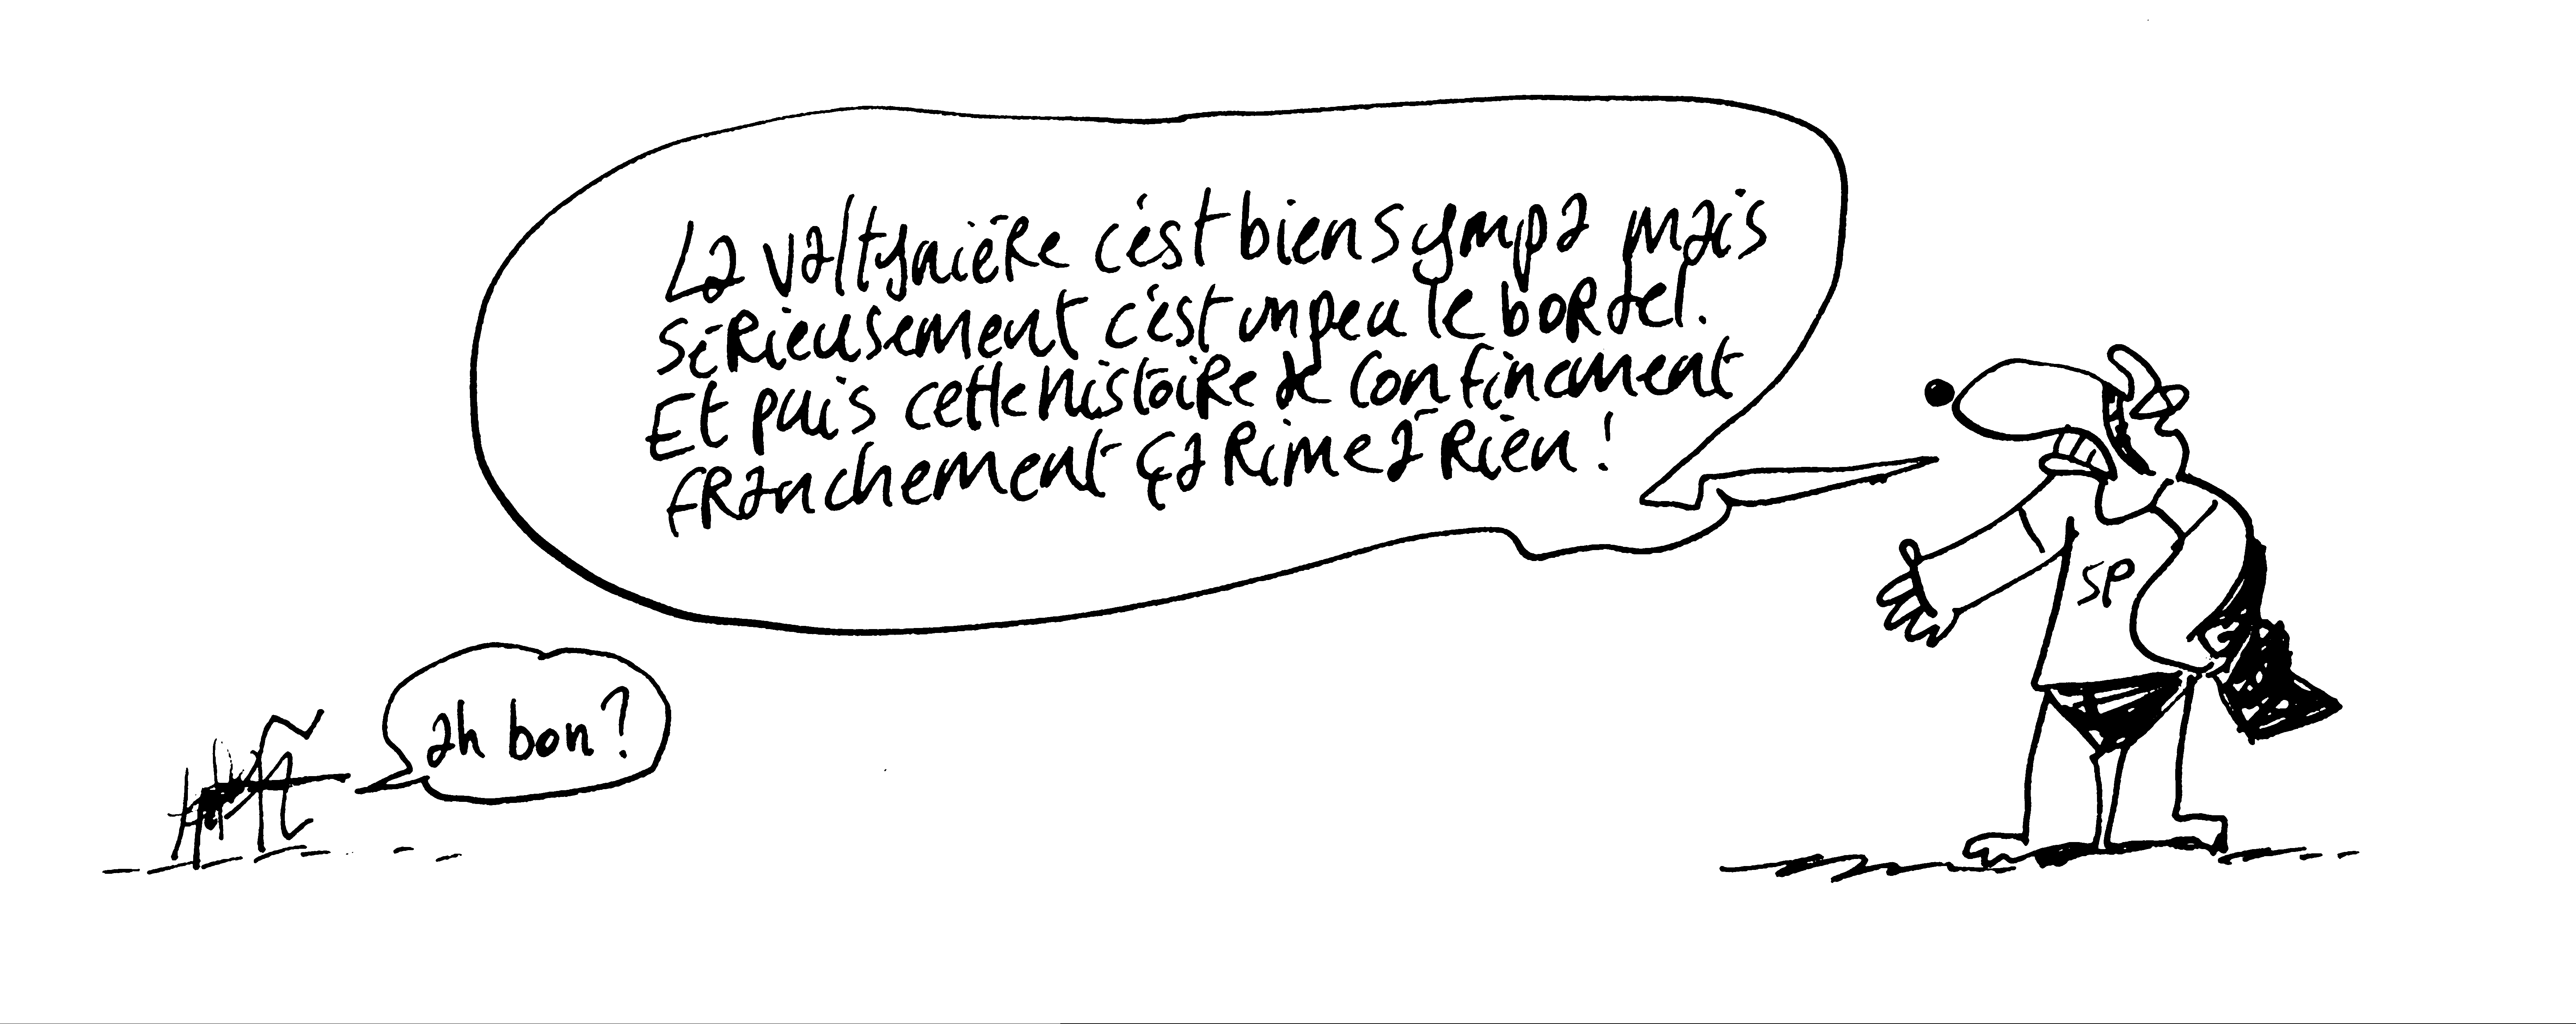 La valtynière c'est bien sympa mais
sérieusement c'est un peu le bordel.
Et puis cette histoire de confinement
franchement ça rime à rien !
SP
ah bon ?